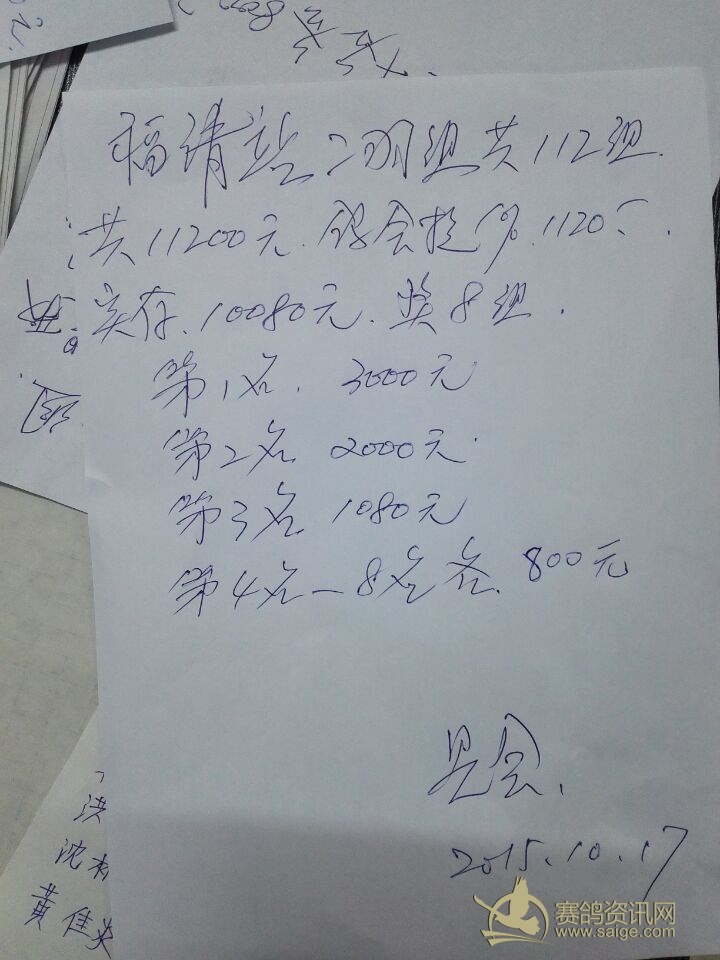 福清站二羽组共112组.
共11200元.给会提10%.1120元.
实存.10080元.奖8组.
第1名. 3000元
第2名 2000元
第3名 1080元
第4名-8名各.800元
2015.10.17
洪
沈
黄佳
赛鸽资讯网
www.saige.com